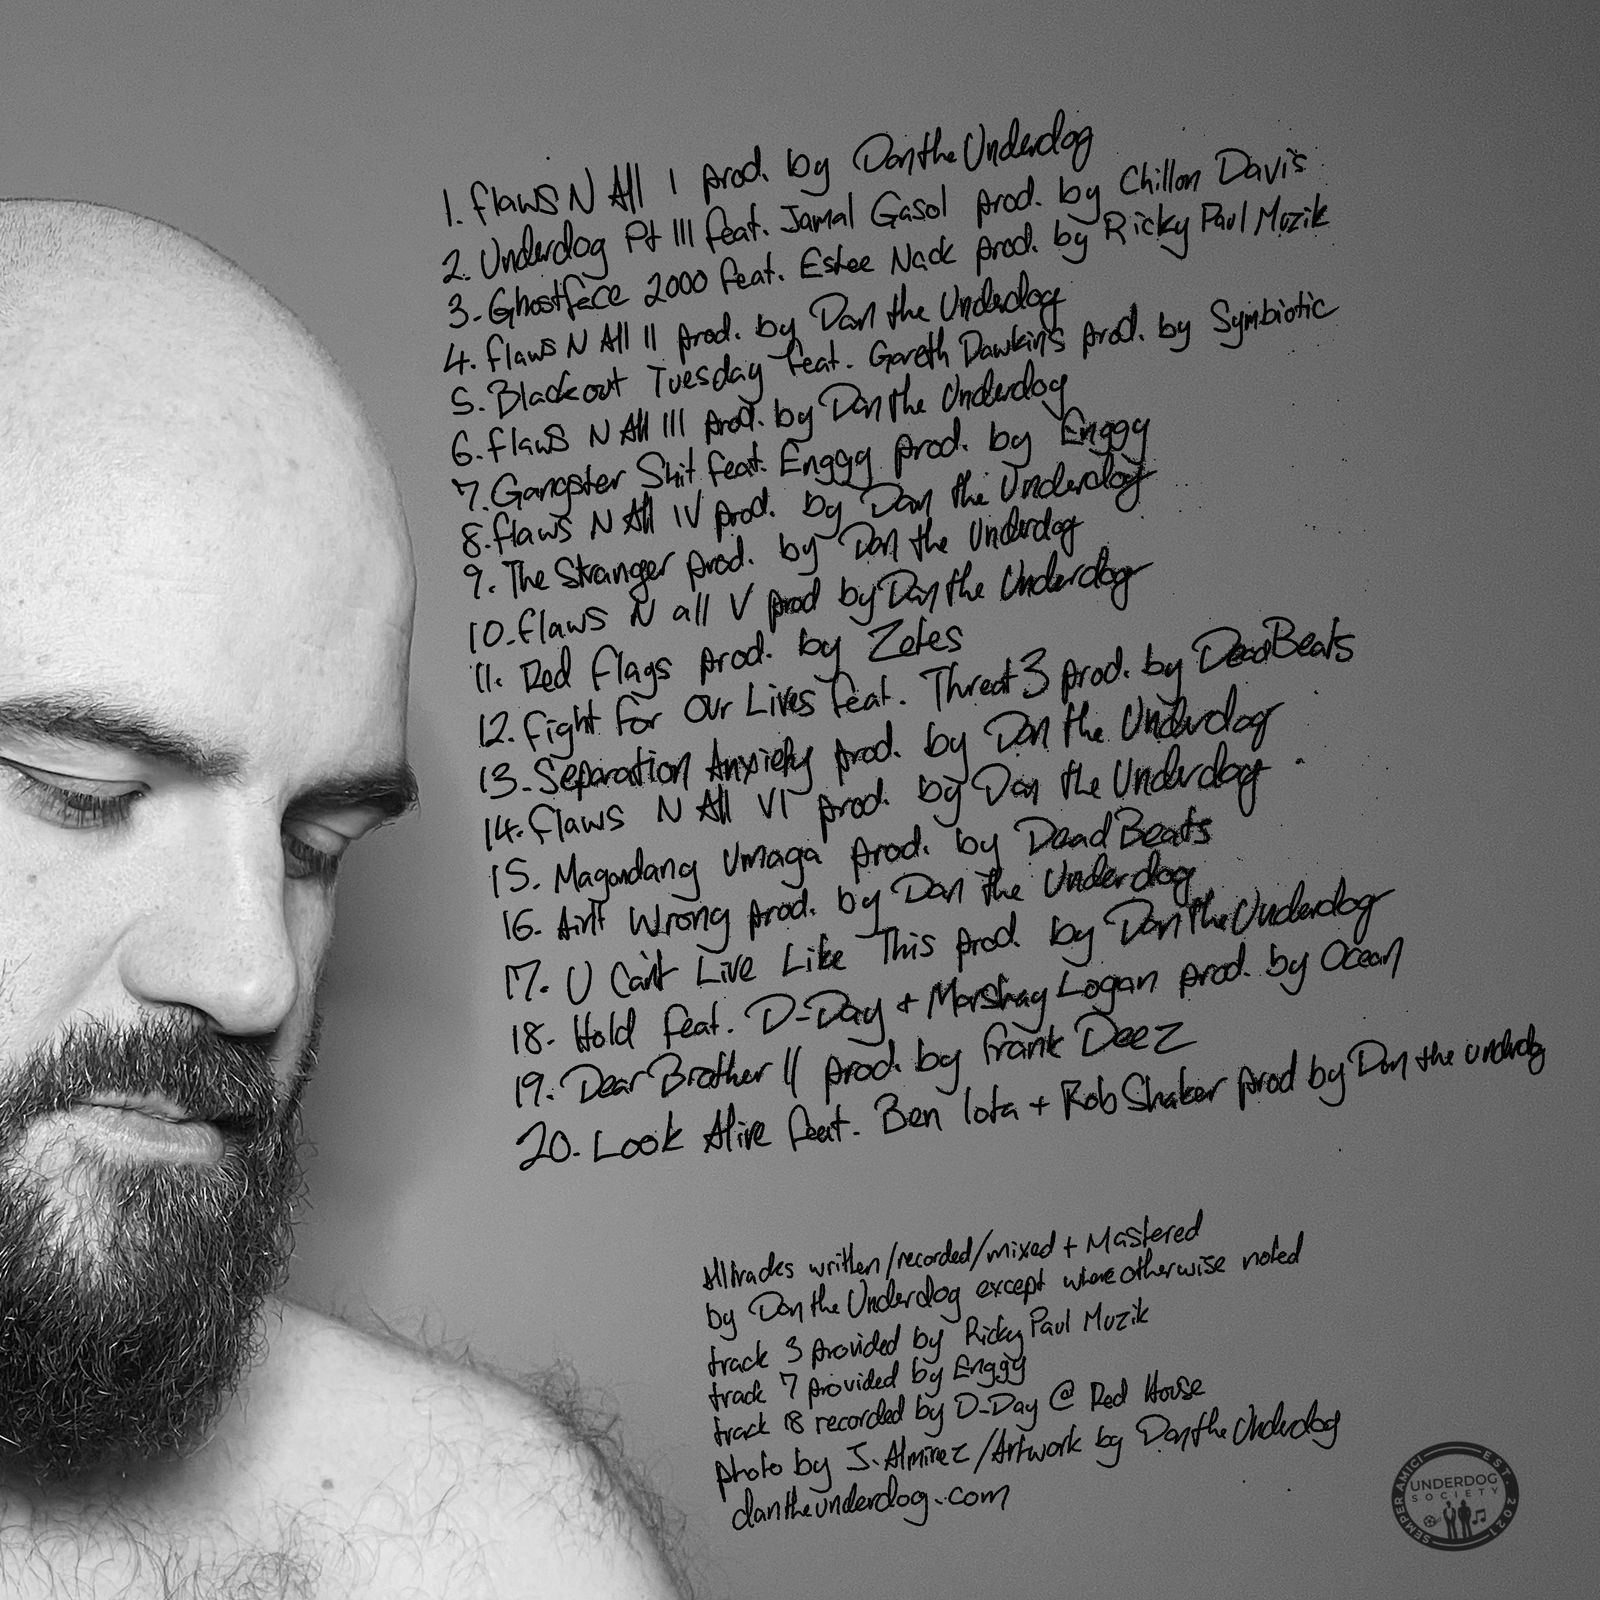 1. Flaws N All I prod. by Dan the Underdog
2. Underdog Pt III feat. Jamal Gasol prod. by Chillon Davis
3. Ghostface 2000 feat. Estee Nack prod. by Ricky Paul Muzik
4. Flaws N All II prod. by Dan the Underdog
5. Blackout Tuesday feat. Gareth Dawkins prod. by Symbiotic
6. Flaws N All III prod. by Dan the Underdog
7. Gangster Shit feat. Enggy prod. by Enggy
8. Flaws N All IV prod. by Dan the Underdog
9. The Stranger prod. by Dan the Underdog
10. Flaws N all V prod by Dan the Underdog
11. Red Flags prod. by Zetes
12. Fight For Our Lives feat. Threat 3 prod. by DeadBeats
13. Separation Anxiety prod. by Dan the Underdog
14. Flaws N All VI prod. by Dan the Underdog
15. Magandang Umaga prod. by DeadBeats
16. Ain't Wrong prod. by Dan the Underdog
17. U Can't Live Like This prod. by Dan the Underdog
18. Hold feat. D-Day + Marshay Logan prod. by Ocean
19. Dear Brother II prod. by Frank Deez
20. Look Alive feat. Ben Iota + Rob Shaker prod by Dan the underdog
All tracks written/recorded/mixed + Mastered
by Dan the Underdog except where otherwise noted
track 3 provided by Ricky Paul Muzik
track 7 provided by Enggy
track 18 recorded by D-Day @ Red House
photo by J. Almirez/Artwork by Dan the Underdog
dantheunderdog.com
SEMPER AMICI EST. 2021
UNDERDOG
SOCIETY